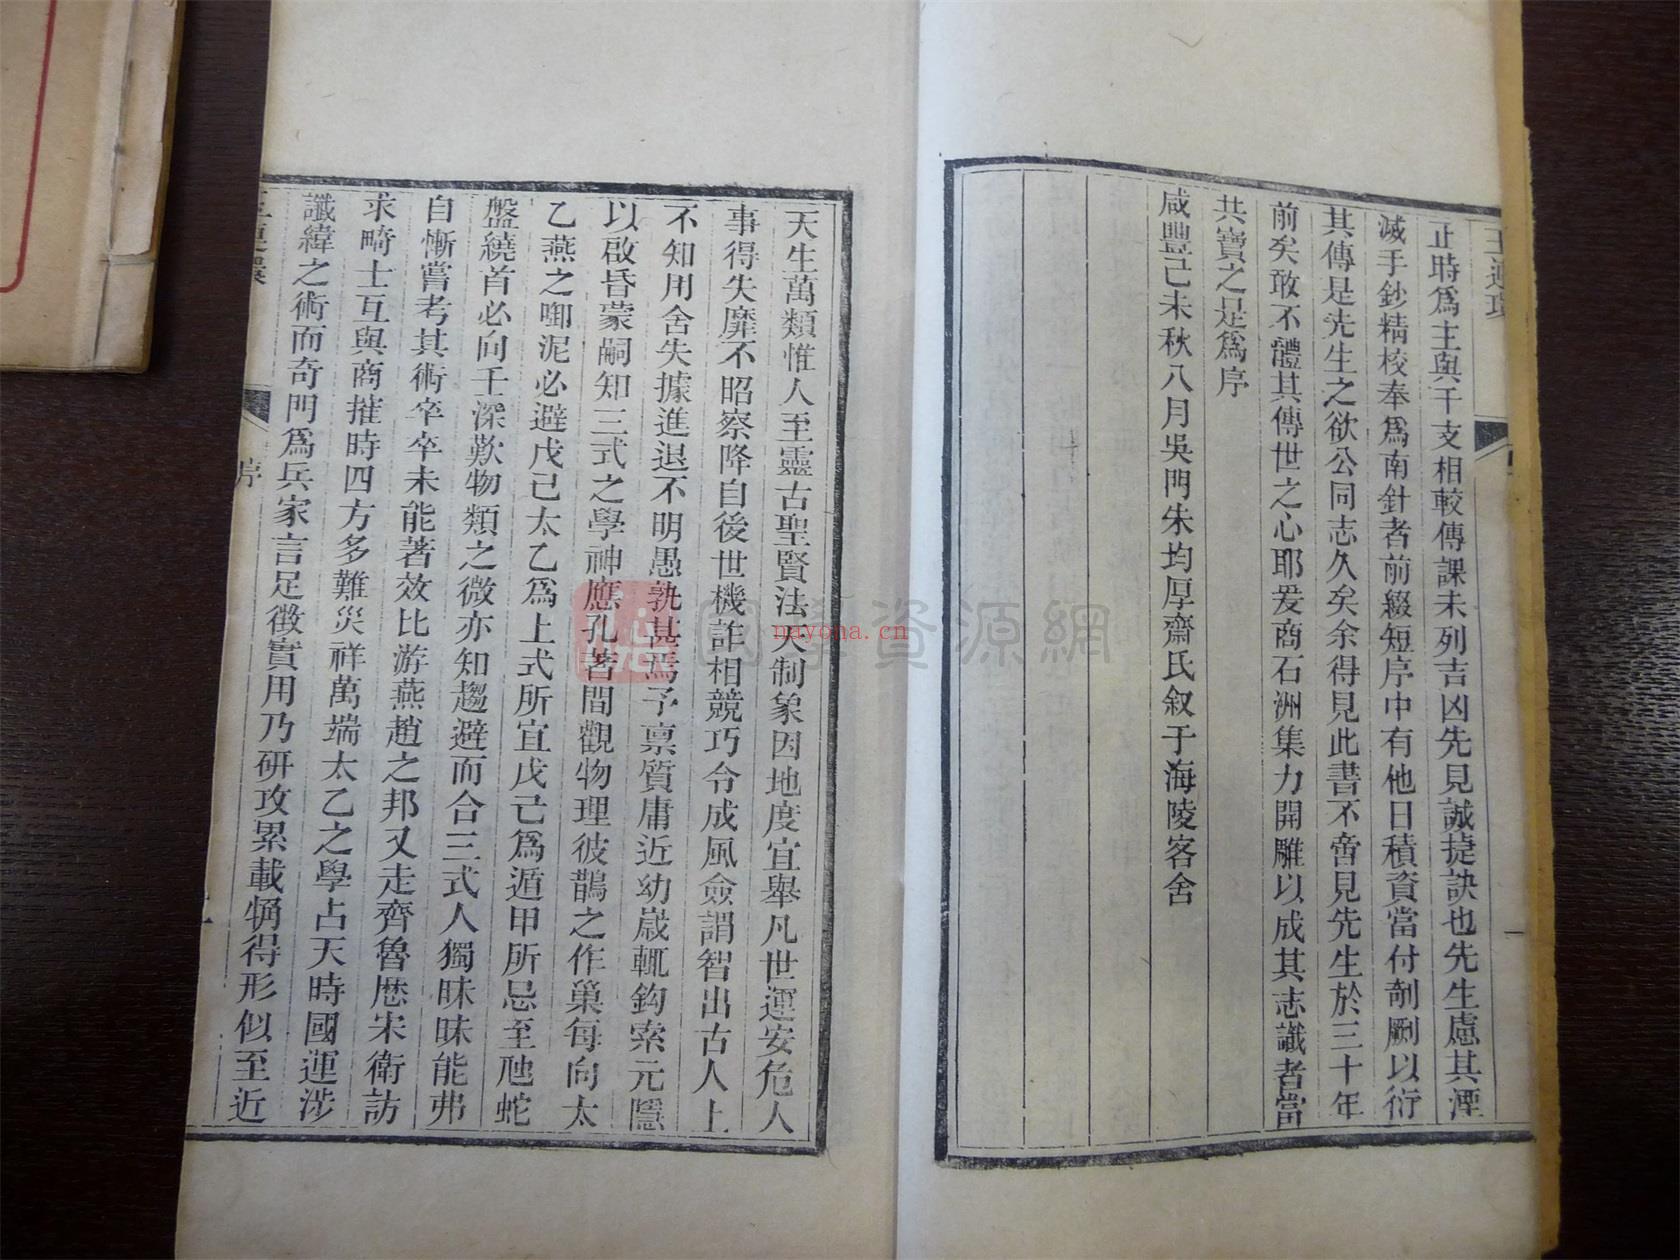 止時爲主與干支相較傳課未列吉凶先見誠捷訣也先生慮其湮
滅手鈔精校奉爲南針者前綴短序中有他日積資當付剞劂以衍
其傳是先生之欲公同志久矣余得見此書不啻見先生於三十年
前矣敢不體其傳世之心耶爰商石洲集力開雕以成其志識者當
共寶之是爲序
咸豐己未秋八月吳門朱均厚齋氏叙于海陵客舍
天生萬類惟人至靈古聖賢法天制象因地度宜舉凡世運安危人
事得失靡不昭察降自後世機詐相競巧令成風僉謂智出古人上
不知用舍失據進退不明愚孰甚焉予禀質庸近幼嵗輒鈎索元隱
以啟昏蒙嗣知三式之學神應孔著間觀物理彼鵲之作巢每向太
乙燕之啣泥必避戊己太乙爲上式所宜戊己爲遁甲所忌至虺蛇
盤繞首必向壬深歎物類之微亦知趨避而合三式人獨昧昧能弗
自慚嘗考其術卒卒未能著效比游燕趙之邦又走齊魯歴宋衛訪
求畸士互與商搉時四方多難災祥萬端太乙之學占天時國運涉
讖緯之術而奇門爲兵家言足徵實用乃研攻累載犕得形似至近
序
國學資源網
nayona.cn